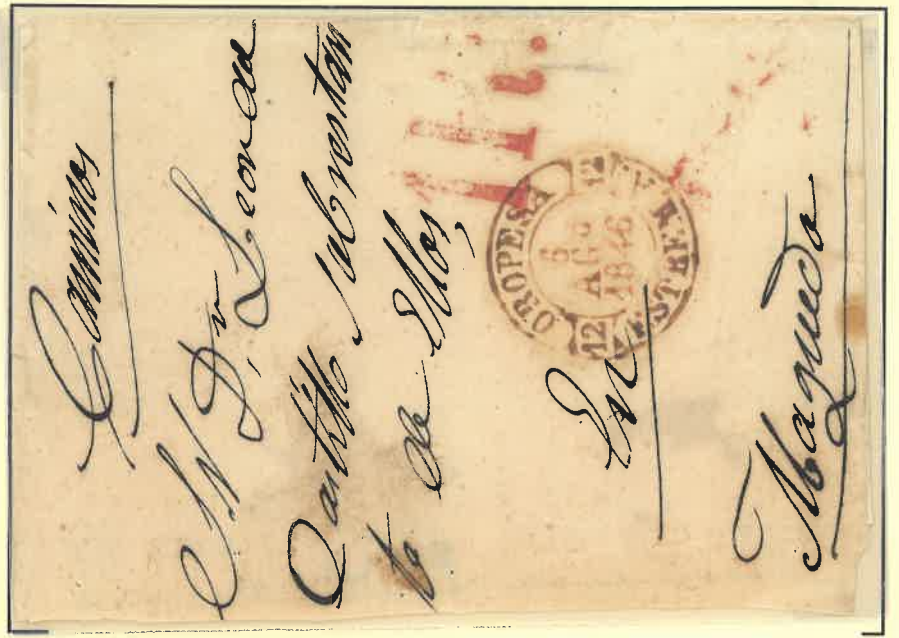 Caminos
Sr Dn Leonar
Castillo Subrestan
te de Ellos,
OROPESA
12 12
6
AGO
1846
ESTREM.A
En
Maqueda